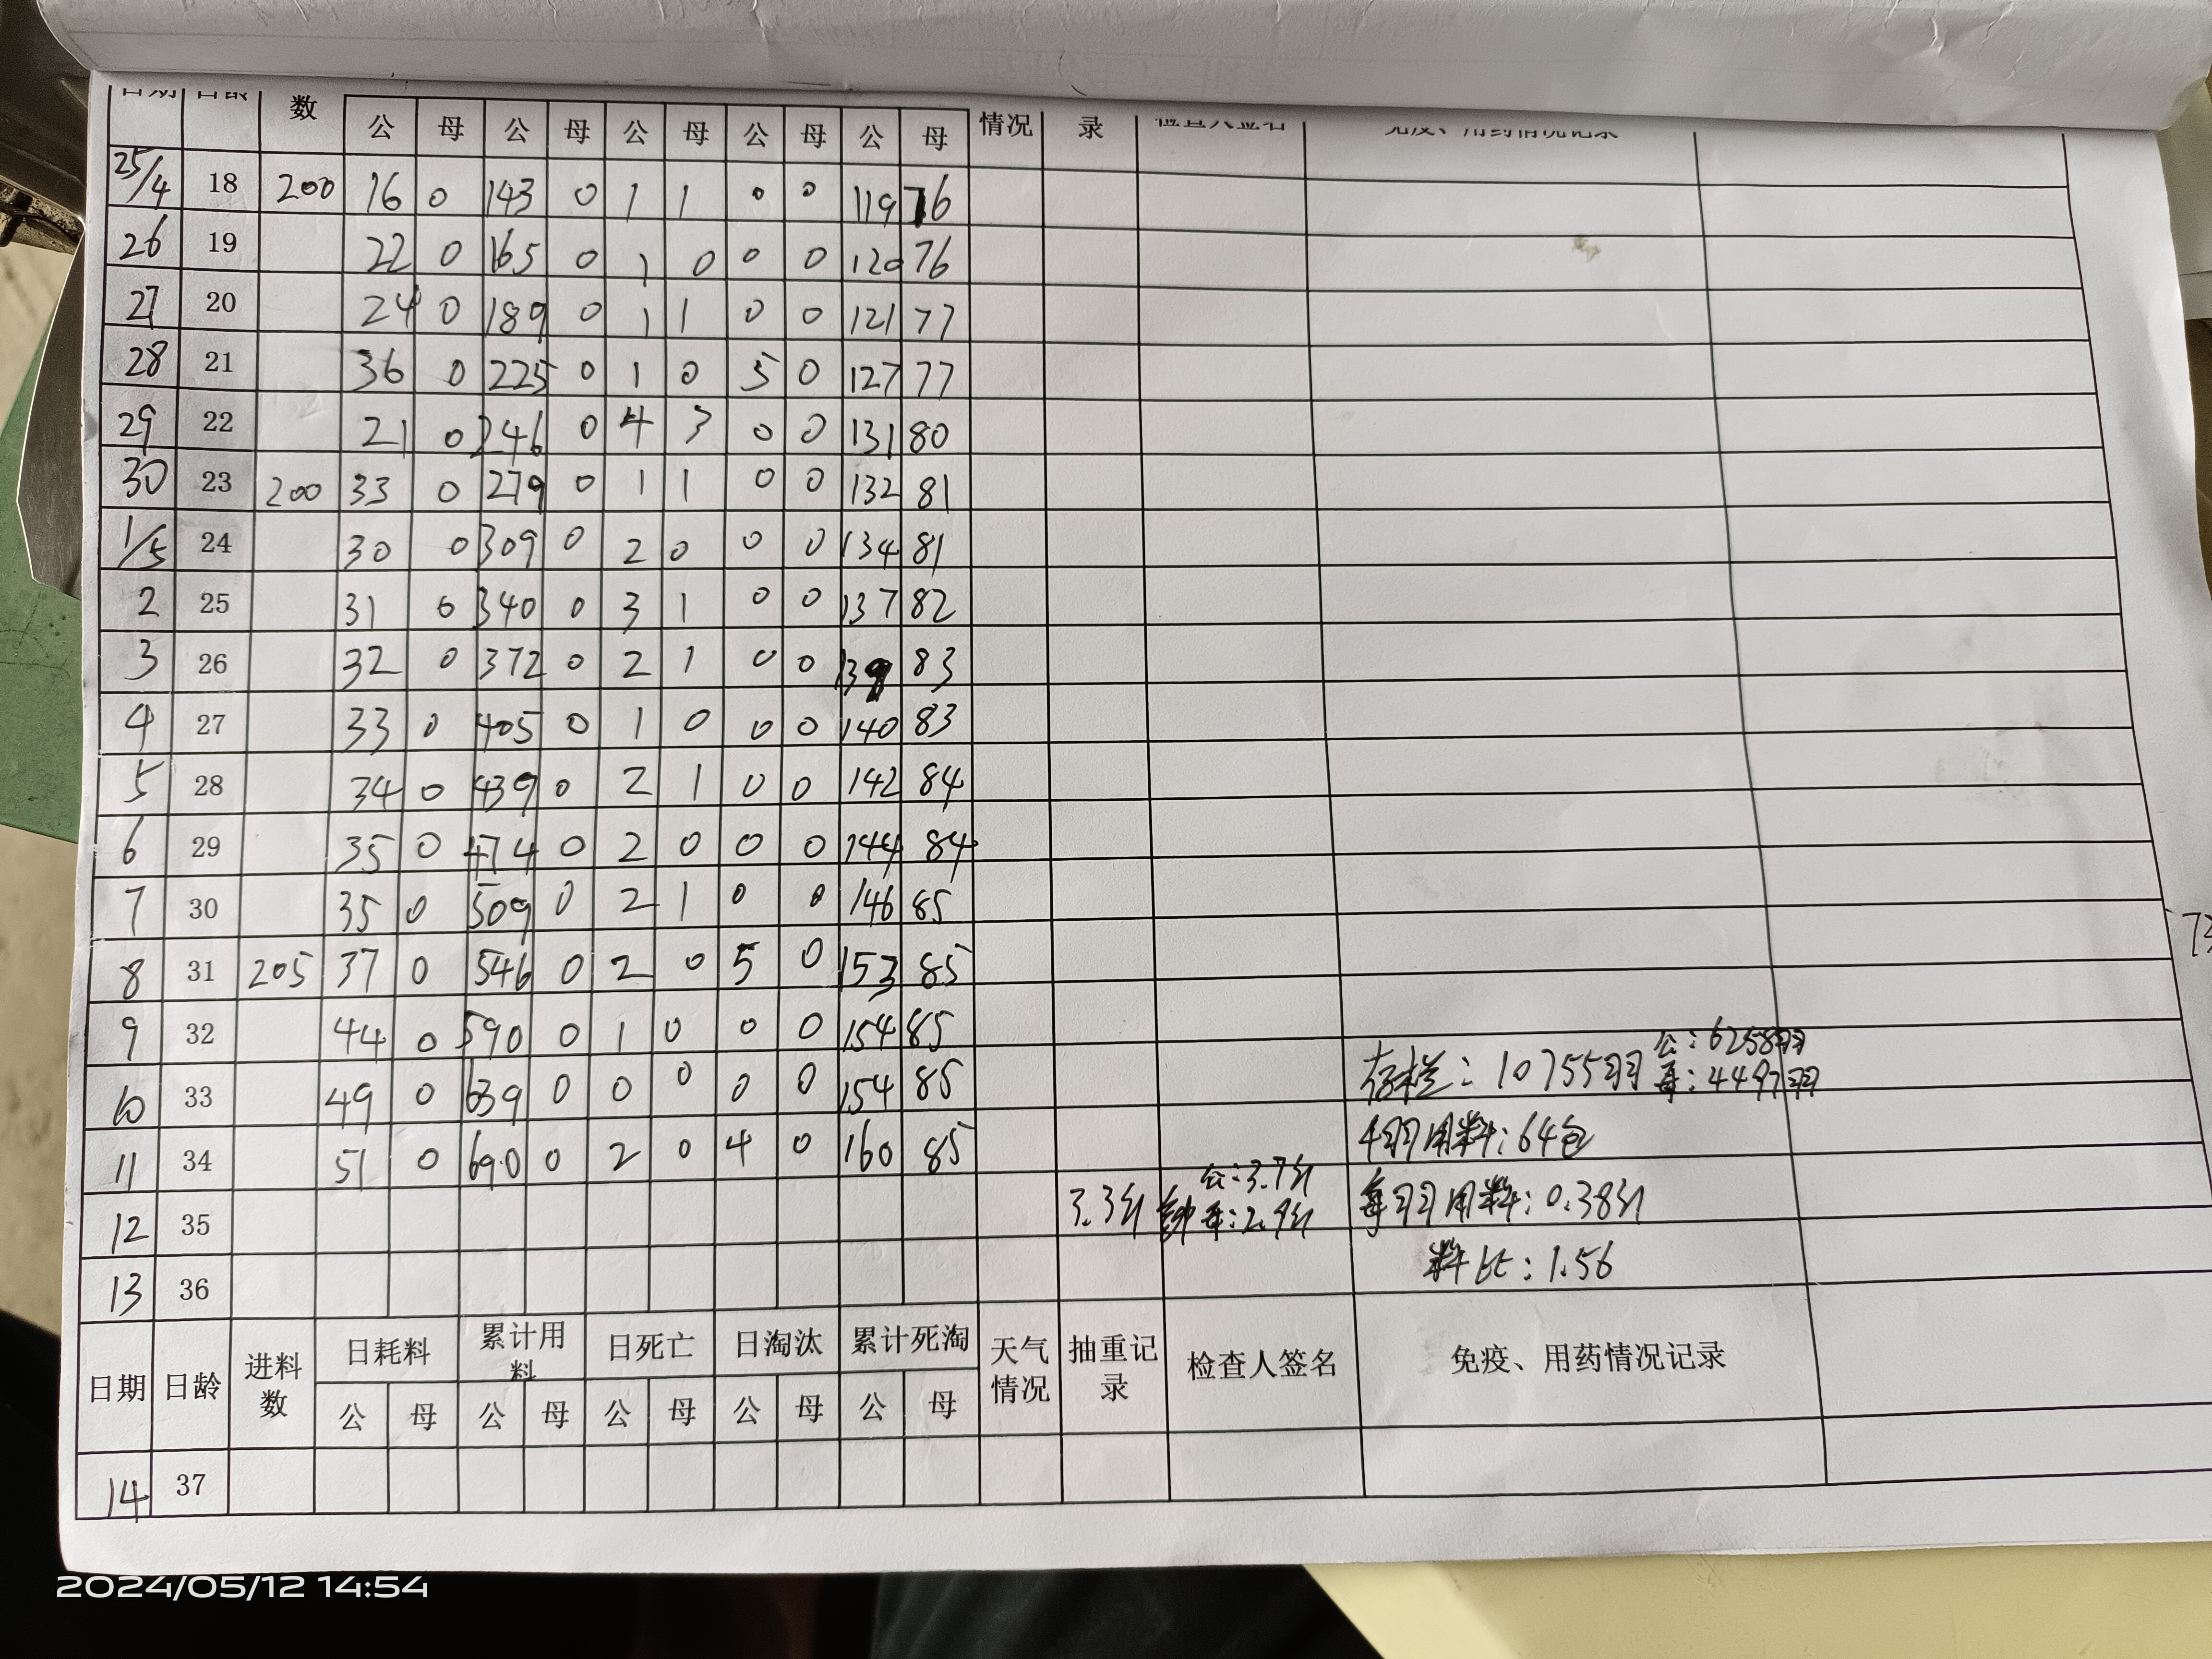 日期 日龄 数 公 母 公 母 公 母 公 母 公 母 情况 录 检查人签名 免疫、用药情况记录
25/4 18 200 16 0 143 0 1 1 0 0 119 76
26 19 22 0 165 0 1 0 0 0 120 76
27 20 24 0 189 0 1 1 0 0 121 77
28 21 36 0 225 0 1 0 5 0 127 77
29 22 21 0 246 0 4 3 0 0 131 80
30 23 200 33 0 279 0 1 1 0 0 132 81
1/5 24 30 0 309 0 2 0 0 0 134 81
2 25 31 0 340 0 3 1 0 0 137 82
3 26 32 0 372 0 2 1 0 0 139 83
4 27 33 0 405 0 1 0 0 0 140 83
5 28 34 0 439 0 2 1 0 0 142 84
6 29 35 0 474 0 2 0 0 0 144 84
7 30 35 0 509 0 2 1 0 0 146 85
8 31 205 37 0 546 0 2 0 5 0 153 85
9 32 44 0 590 0 1 0 0 0 154 85
公:6258羽
存栏:10755羽 母:4497羽
10 33 49 0 639 0 0 0 0 0 154 85
11 34 51 0 690 0 2 0 4 0 160 85 用料:64包
公:3.7斤
12 35 3.3斤 母:2.9斤 每羽用料:0.38斤
13 36 料比:1.56
日期 日龄 进料数 日耗料 累计用料 日死亡 日淘汰 累计死淘 天气情况 抽重记录 检查人签名 免疫、用药情况记录
公 母 公 母 公 母 公 母 公 母
14 37
2024/05/12 14:54